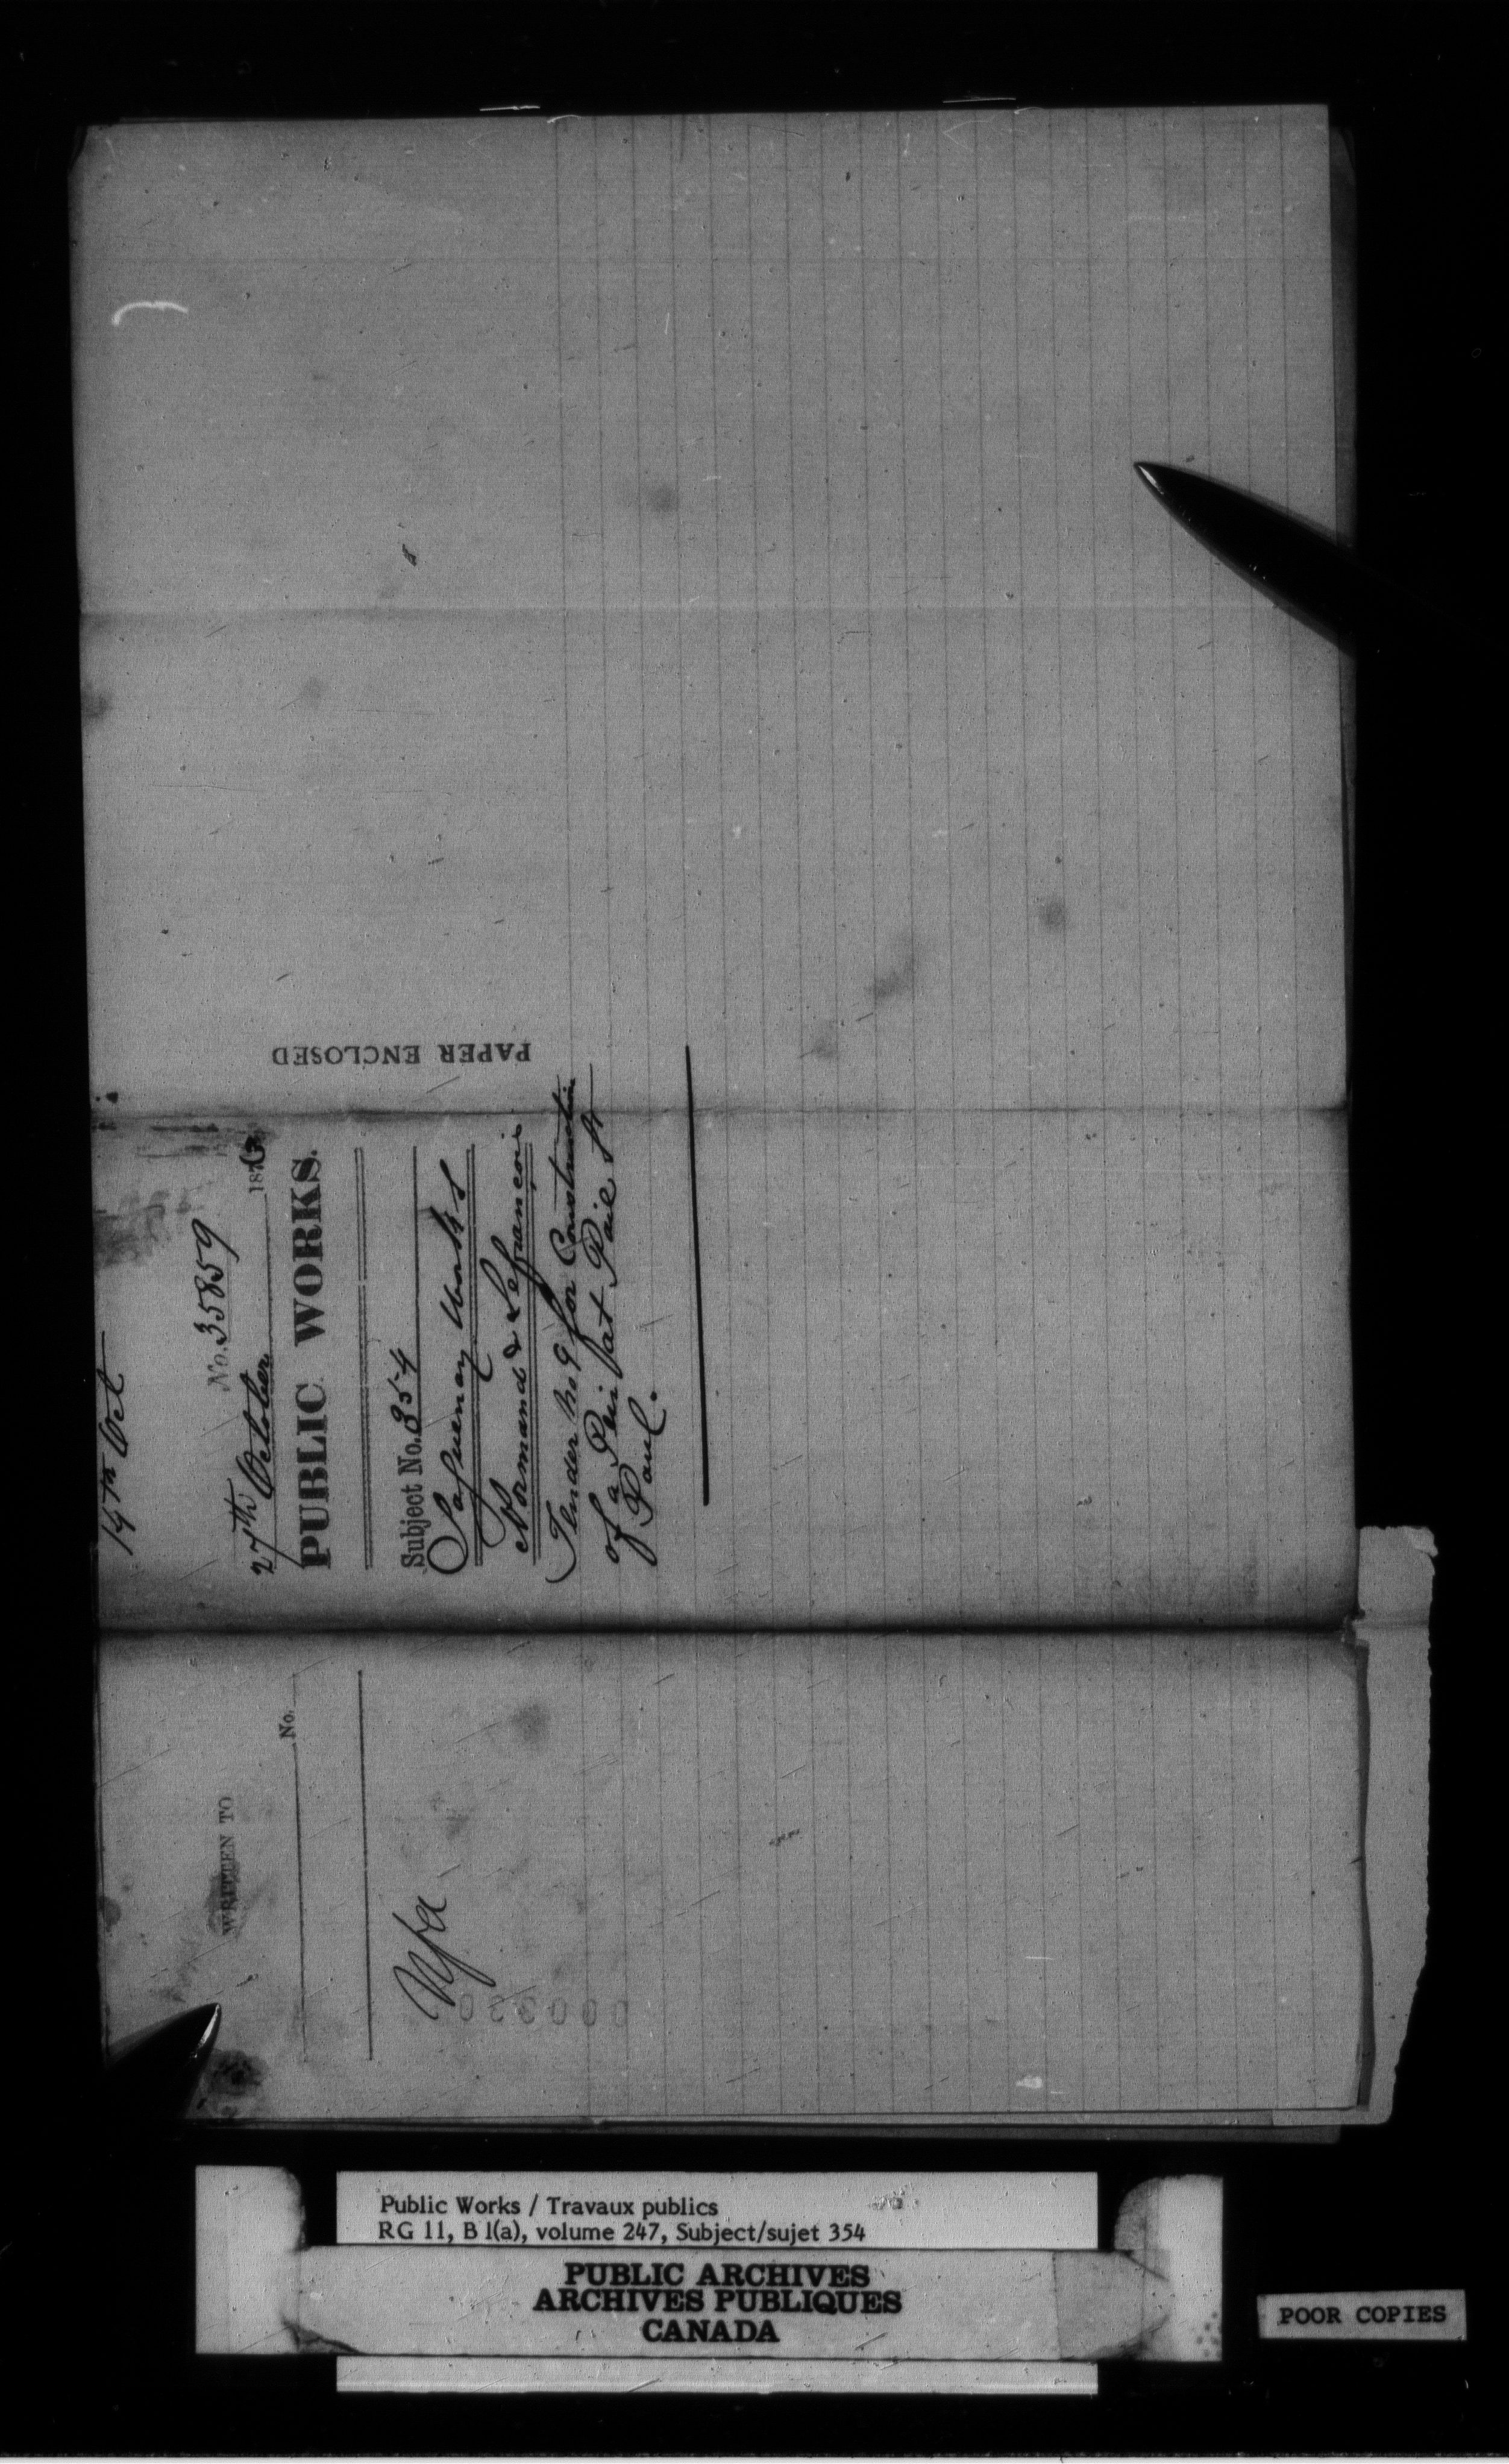 14th Oct
No. 35859
27th October 187
PUBLIC WORKS.
Subject No. 354
Saguenay Works
Normand & Lefrancois
Tender No 9 for Construction
of a Peir at Baie St
Paul.
PAPER ENCLOSED
WRITTEN TO
No.
Nfa
Public Works / Travaux publics
RG 11, B 1(a), volume 247, Subject/sujet 354
PUBLIC ARCHIVES
ARCHIVES PUBLIQUES
CANADA
POOR COPIES